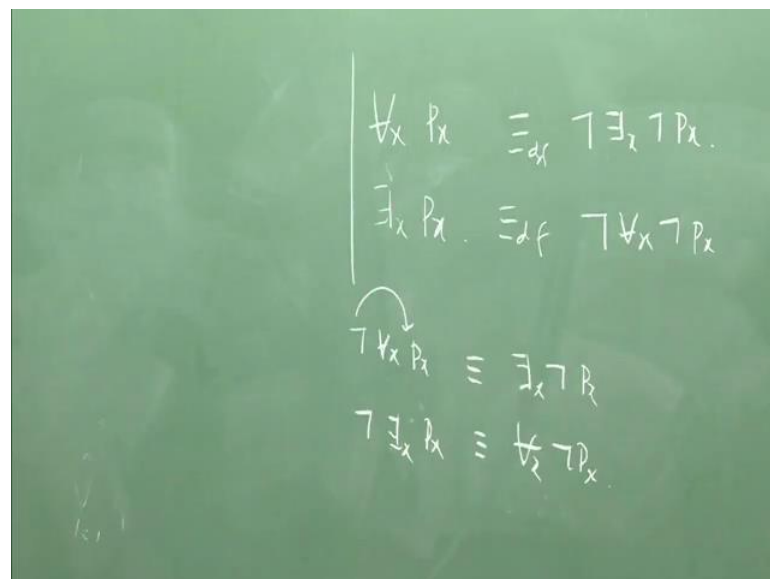 ∀x Px ≡df ¬∃x ¬Px.
∃x Px. ≡df ¬∀x ¬Px
¬∀x Px ≡ ∃x ¬Px
¬∃x Px ≡ ∀x ¬Px.